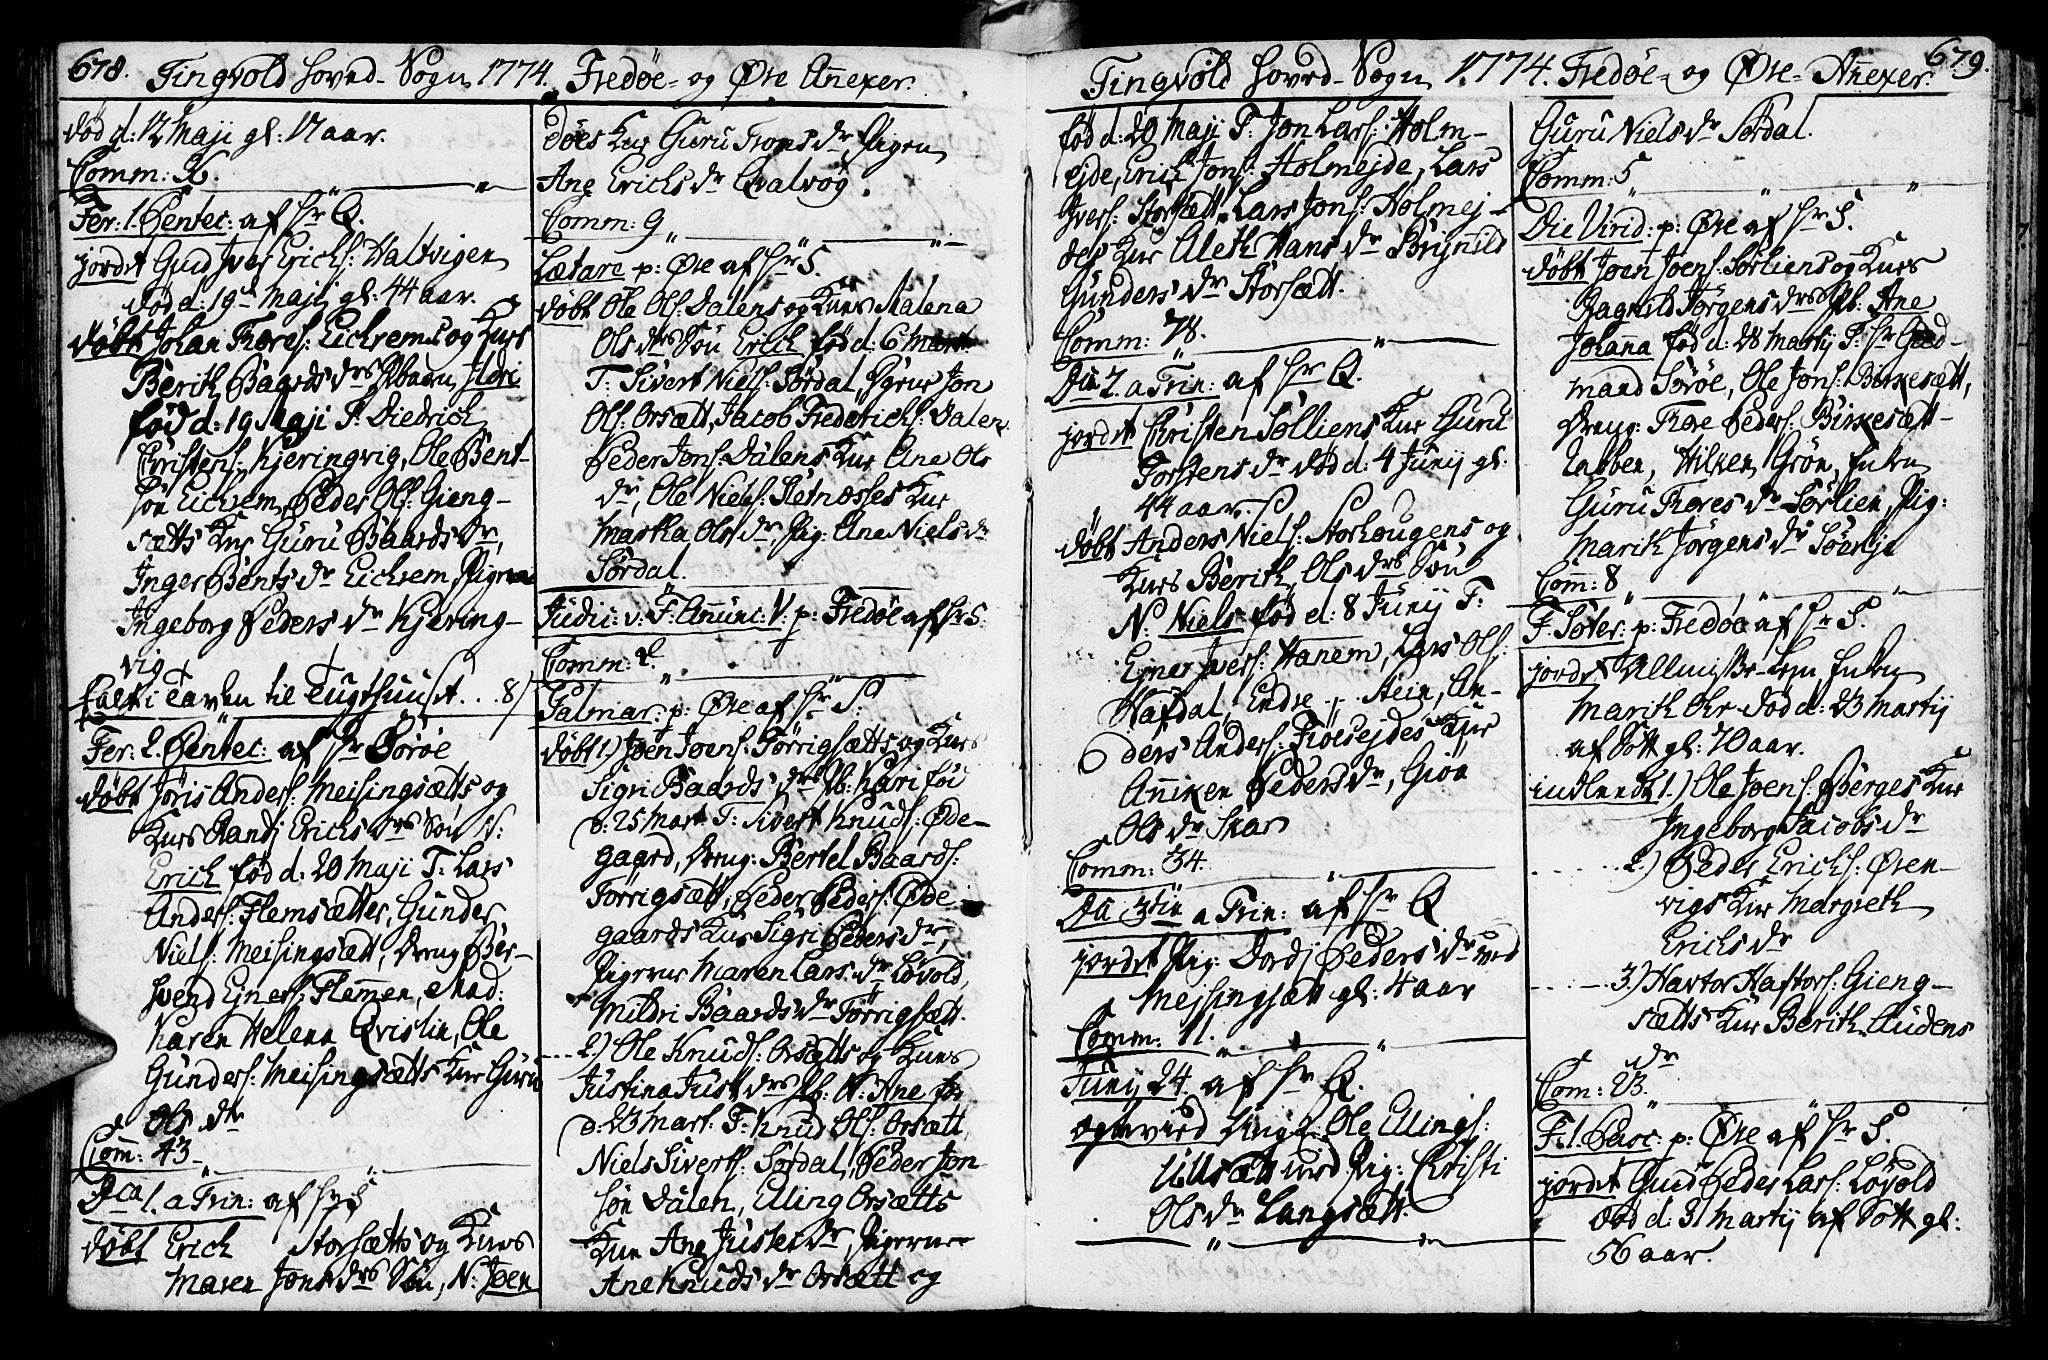 678. Tingvold Hoved-Sogn 1774. Fredøe- og Øre Anexer.
død d: 12 Maji gl: 17 aar.
Comm: X.
Fer: 1. Pentec: af Hr Q.
jordet Gud Iver Erichs: Haltvigen
død d: 19de Maji gl: 44 aar.
døbt Johan Thores: Eichrems og Kones
Berith Baards drs Pbarn, Ildri
fød d: 19 Maji T. Diedrich
Christens: Kjeringvig, Ole Bent-
søn Eichrem, Peder Ols: Gieng-
sætts Kone Guru Baards dr,
Inger Bents dr Eichrem, Pigerne
Ingeborg Peders dr Kjering-
vig
faldt i Tavlen til Tugthuuset .. 8 /
Fer: 2. Pentec: af Hr Sørøe
døbt Jøris Anders: Meisingsætts og
Kones Randj Erichs drs Søn N:
Erich fød d: 20 Maji T: Lars
Anders: Flemsætter, Gunder
Niels: Meisingsætt, Dreng Ber-
svend Ejners: Flemmen, Mad:
Karen Helena Qvislin, Ole
Gunders: Meisingsætts Kone Guru
Ols dtr
Com: 43
Dca 1. a Trin: af Hr S
døbt Erich Storsætts og Kones
Maren Jons drs Søn, N: Joen
døes Kone Guru Trons dr, Pigen
Ane Erichs dr Qvalvog.
Comm: 9
Lætare p: Øre af Hr S.
døbt Ole Ols: Dalens og Kones Malena
Ols drs Søn Erich fød d: 6 Mart.
T: Sivert Niels: Sørdal, Dgrne Jon
Ols: Orsætt, Jacob Frederichs: Dalen
Peder Jons: Dalens Kone Ane Ols
dr, Ole Niels: Sletnæsses Kone
Martha Ols dr, Pig: Ane Niels dr
Sørdal.
Judic: v: F. Anunc: V: p: Fredøe af Hr S.
Comm: 2.
Palmar: p: Øre af Hr S.
døbt 1.) Joen Joens: Torrigsætts og Kones
Sigri Baards drs Pb: Kari fød
d: 25 Mart. T: Sivert Knuds: Øde-
gaard, Dreng: Bertel Baards:
Torrigsætt, Peder Peders: Øde-
gaards Kone Sigri Peders dr,
Pigerne Maren Lars dr Løvold,
Mildri Baards dr Torrigsætt.
2.) Ole Knuds: Orsætts og Kones
Justina Just drs Pb: N: Ane fød
d: 23 Mart: T: Knud Ols: Orsætt,
Niels Siverts: Sørdal, Peder Jon
søn Dalen, Elling Orsætts
Kone Ane Juster dr, Pigerne
Ane Knuds dr Orsætt og
Tingvold Hoved-Sogn 1774. Fredøe- og Øre- Anexer. 679.
fød d: 20 Maji T: Jon Lars: Holm-
ejde, Erich Jons: Holmejde, Lars
Ivers: Storsætt, Lars Jons: Holmej-
des Kone Aleth Hans dr Brynild
Gunders dr Storsætt.
Comm: 78.
Da 2. a Trin: af Hr Q.
jordet Christen Solliens Kone Guru
Torstens dr død d: 4 Junij gl:
44 aar.
døbt Anders Niels: Storhougens og
Kones Berith Ols drs Søn
N: Niels fød d: 8 Junij T:
Ejner Ivers: Hanem, Lars Ols:
Hafdal, Endre Stein, An-
ders Anders: Fløesejdes Kone
Anniken Peders dr, Gióa
Ols dr Skar
Comm: 34.
Da 3tia a Trin: af Hr Q
jordet Pig: Dordj Peders dr ved
Mejsingsætt gl: 4 aar
Comm: 11.
Junij 24. af Hr Q.
copulerd Ungk: Ole Ellings:
Ullsætt med Pig: Christi
Ols dr Langsætt.
Guru Niels dr Sørdal.
Comm: 5
Die Virid: p: Øre af Hr S.
døbt Joen Joens: Sørliens og Kones
Ragnild Jørgens drs Pb: Ane
Johana fød d: 28 Martij T: Hr Gied-
mand Sørøe, Ole Jons: Birkesætt,
Dreng: Thore Peders: Birkesætt-
Labben, Hilken Grøn, Enken
Guru Thores dr Sørlien, Pig:
Marith Jørgens dr Söevje
Com: 8
F. Soter: p: Fredøe af Hr S.
jordet Allmisse-Lem Enken
Marith Ohr død d: 23 Martij
af Sótt gl: 70 aar.
indleedt 1.) Ole Joens: Berges Kone
Ingeborg Jacobs dr
2.) Peder Erichs: Øren-
vigs Kone Margreth
Erichs dr
3.) Hartor Haftors: Gieng-
sætts Kone Berith Audens
dr
Com: 23.
F. 1. Pasc: p: Øre af Hr S.
jordet Gud Peder Lars: Løvold
død d: 31 Martij af Sótt gl:
56 aar.